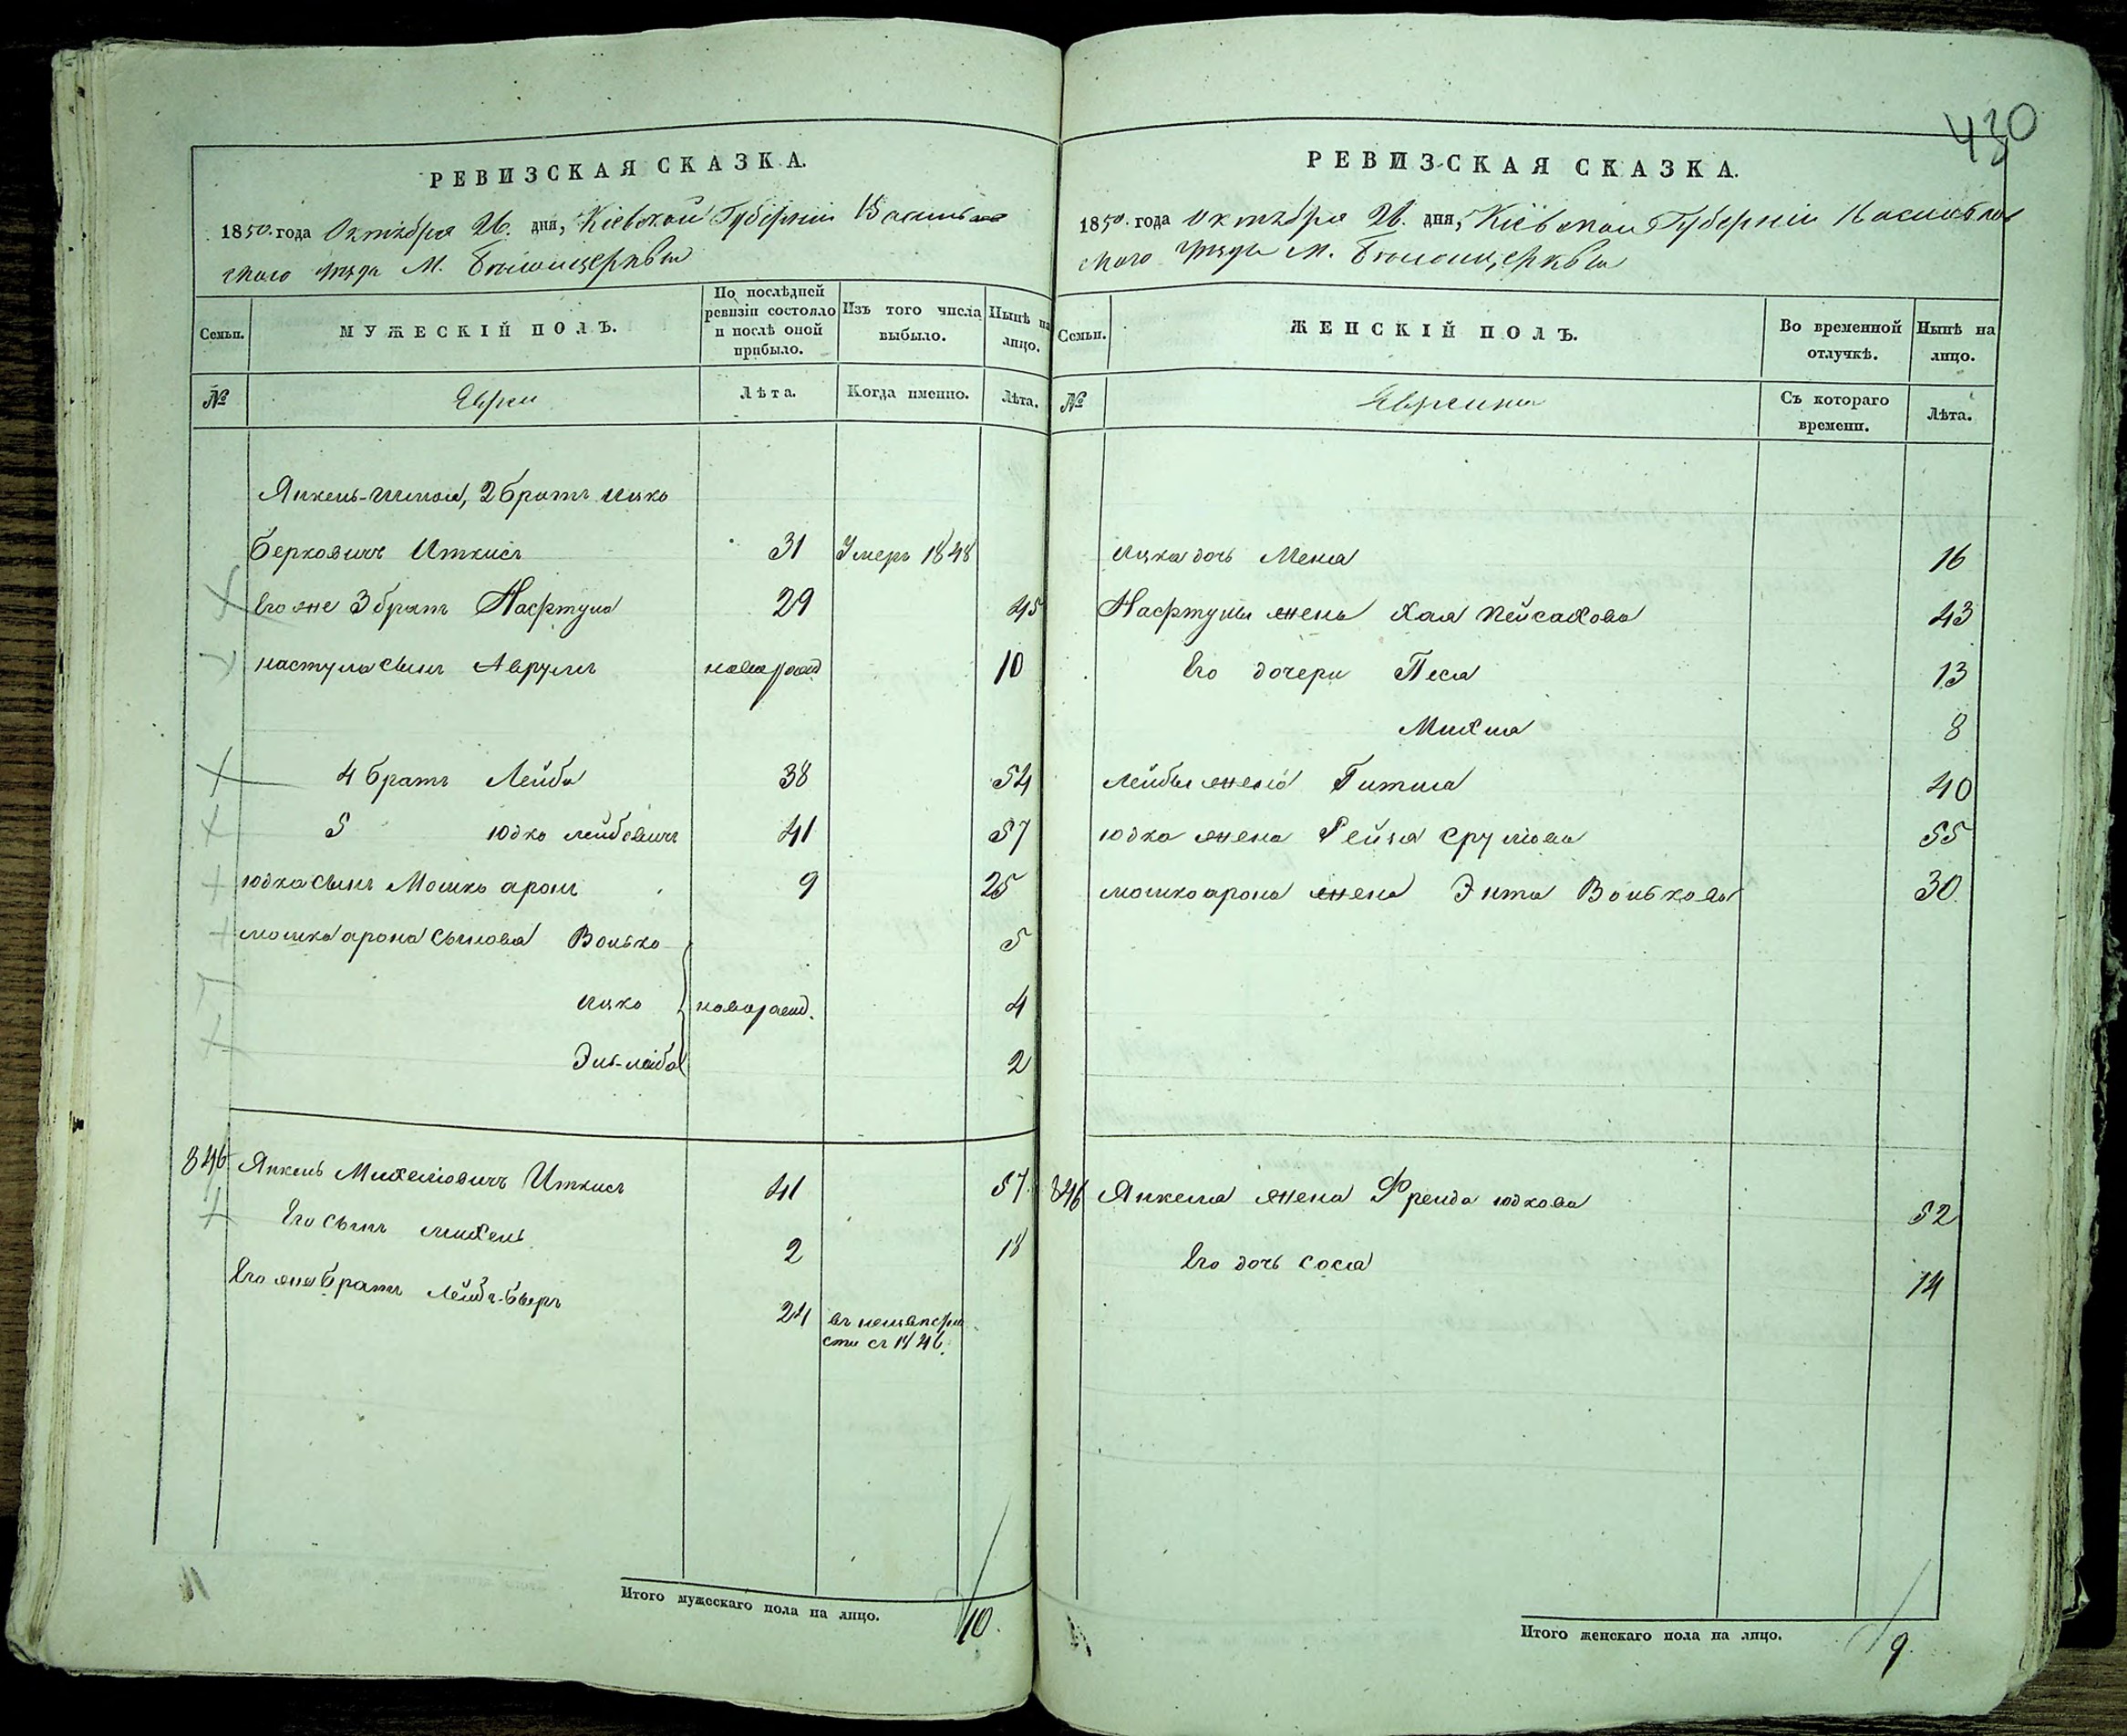 430
РЕВИЗСКАЯ СКАЗКА.
1850. года Октября 26. дня, Кіевской Губерніи Василь
скаго уѣзда М. Бѣлоицеркви
Семьи.
МУЖЕСКІЙ ПОЛЪ.
По послѣдней ревизіи состояло и послѣ оной прибыло.
Изъ того числа выбыло.
Нынѣ на лицо.
№
Евреи
Лѣта.
Когда именно.
Лѣта.
Янкель-Шмои, 2 братъ Ицко
Берковичъ Иткисъ 31 Умеръ 1848
Его же 3 братъ Нафтула 29 45
настула сынъ Аврумъ новорожд 10
4 братъ Лейба 38 54
5 Юдко Лейбовичъ 41 57
Юдка сынъ Мошко аронъ 9 25
мошка арона сыновья Волько 5
Ицко новорожд. 4
Эль-лейба 2
846 Янкель Михелiовичъ Иткисъ 41 57
Его сынъ михель 2 18
Его же братъ Лейба-беръ 24 въ неизвѣстно
сти съ 1846.
Итого мужескаго пола на лицо. 10.
РЕВИЗСКАЯ СКАЗКА.
1850. года Октября 26. дня, Кіевской Губерніи Василько
скаго уѣзда М. Бѣлоицеркви
Семьи.
ЖЕНСКІЙ ПОЛЪ.
Во временной отлучкѣ.
Нынѣ на лицо.
№
Еврейки
Съ котораго времени.
Лѣта.
Ицка дочь Меня 16
Нафтулы жена Хая Пейсахова 43
Его дочери Песя 13
Михля 8
Лейбы жена Гитля 40
Юдка жена Рейзя Срулiова 55
мошко арона жена Энта Волькова 30
846 Янкеля жена Фрейда Юдкова 52
Его дочь Сося 14
Итого женскаго пола на лицо. 9